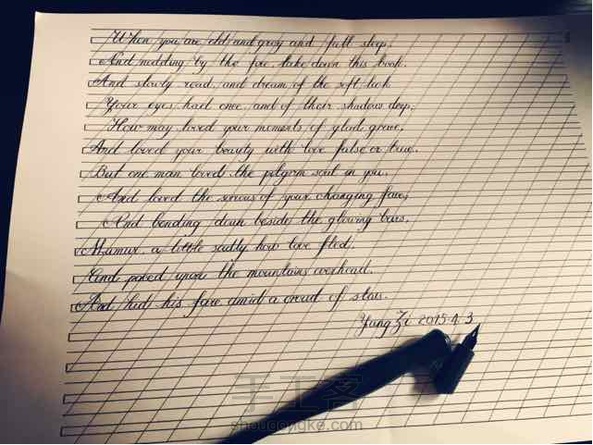 When you are old and grey and full sleep,
And nodding by the fire, take down this book.
And slowly read, and dream of the soft lock
Your eyes had once, and of their shadows deep;
How may loved your moments of glad grave,
And loved your beauty with love false or true.
But one man loved the pilgrim soul in you.
And loved the sorrows of your changing face;
And bending down beside the glowing bars.
Mumur, a little sadly how love fled.
And paced upon the mountains overhead.
And hid his face amid a crowd of stars.
Yang Zi 2015.4.3
手工客
shougongke.com